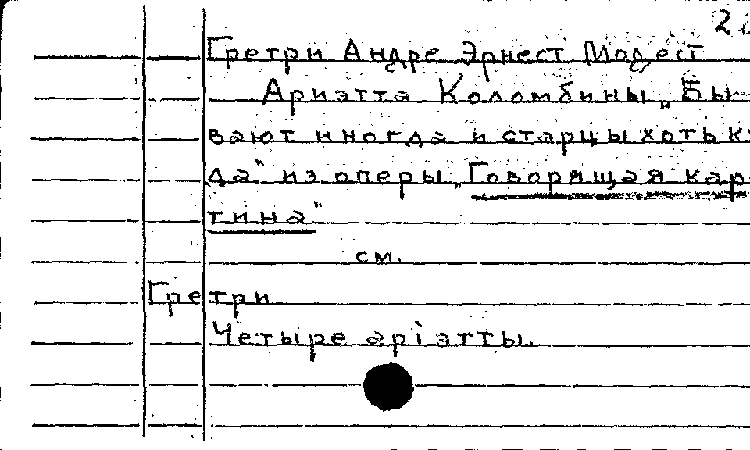 Гретри Андре Эрнест Модест
Ариэтта Коломбины „Бы-
вают иногда и старцы хоть
да" из оперы „Говорящая кар-
тина"
см.
Гретри
Четыре арiэтты.